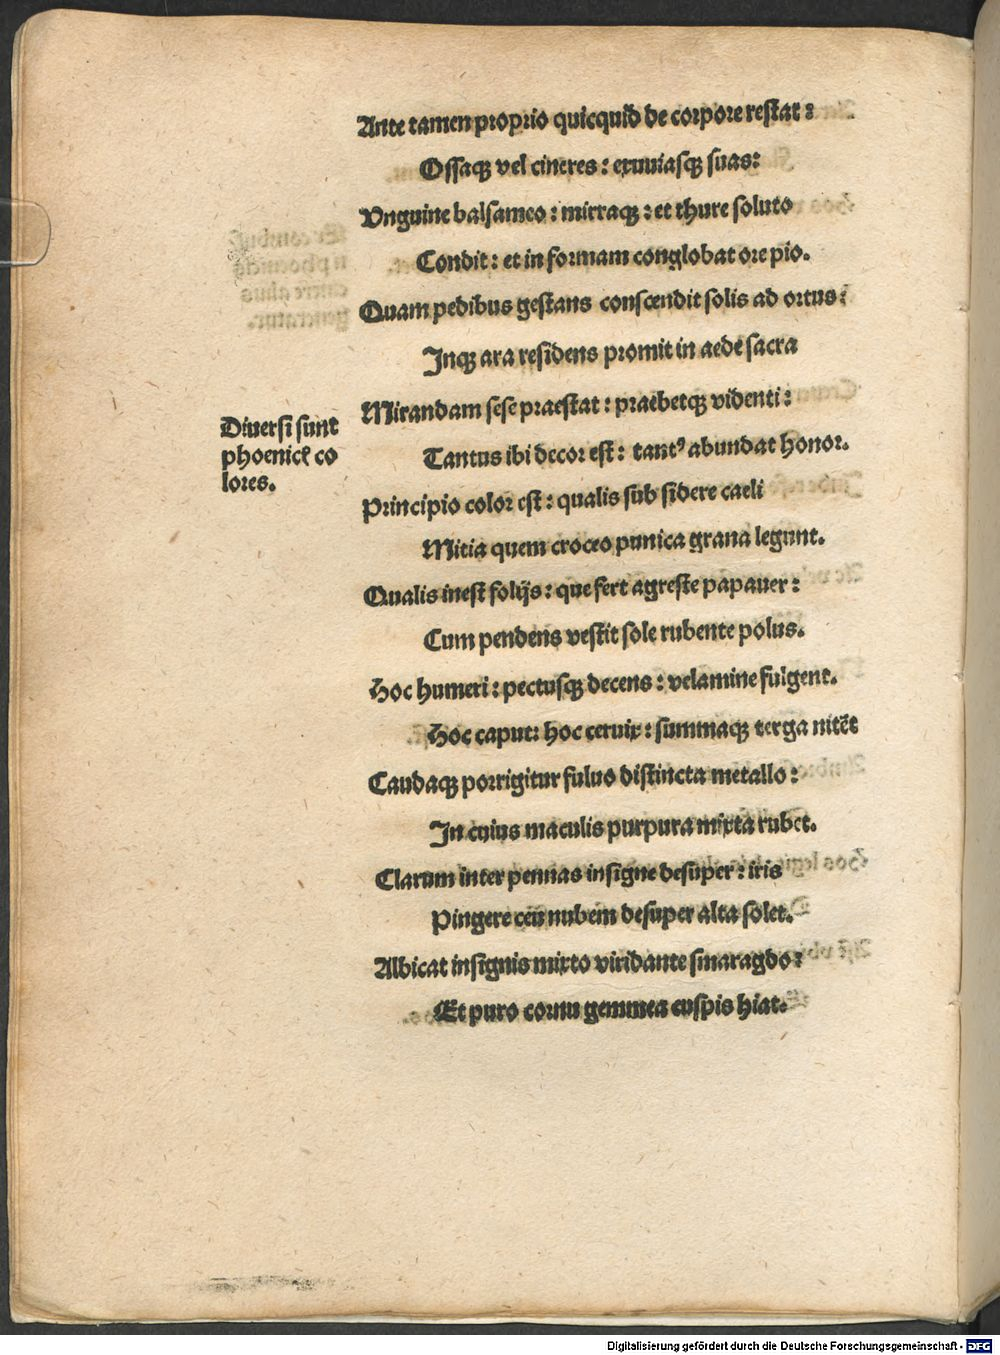 Ante tamen proprio quicquid de corpore restat:
Ossaqȝ vel cineres: exuuiasqȝ suas:
Vnguine balsameo: mirraqȝ: et thure soluto
Condit: et in formam conglobat ore pio.
Quam pedibus gestans conscendit solis ad ortus:
Inqȝ ara residens promit in aede sacra
Mirandam sese praestat: praebetqȝ videnti:
Tantus ibi decor est: tantꝰ abundat honor.
Diuersi sunt
phoenicꝭ co
lores.
Principio color est: qualis sub sidere caeli
Mitia quem croceo punica grana legunt.
Qualis inest folijs: que fert agreste papauer:
Cum pendens vestit sole rubente polus.
Hoc humeri: pectusqȝ decens: velamine fulgent.
Hoc caput: hoc ceruix: summaqȝ terga nitēt
Caudaqȝ porrigitur fuluo distincta metallo:
In cuius maculis purpura mixta rubet.
Clarum inter pennas insigne desuper: iris
Pingere ceu nubem desuper alta solet.
Albicat insignis mixto viridante smaragdo:
Et puro cornu gemmea cuspis hiat.
Digitalisierung gefördert durch die Deutsche Forschungsgemeinschaft - DFG